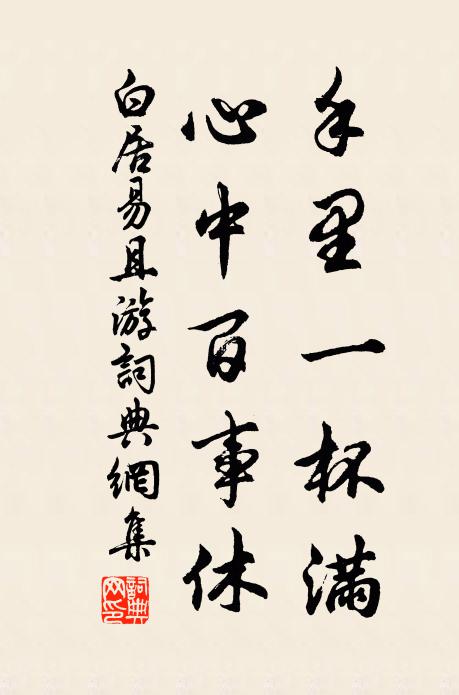 手里一杯满
心中百事休
白居易且游詞典網集
詞典網印